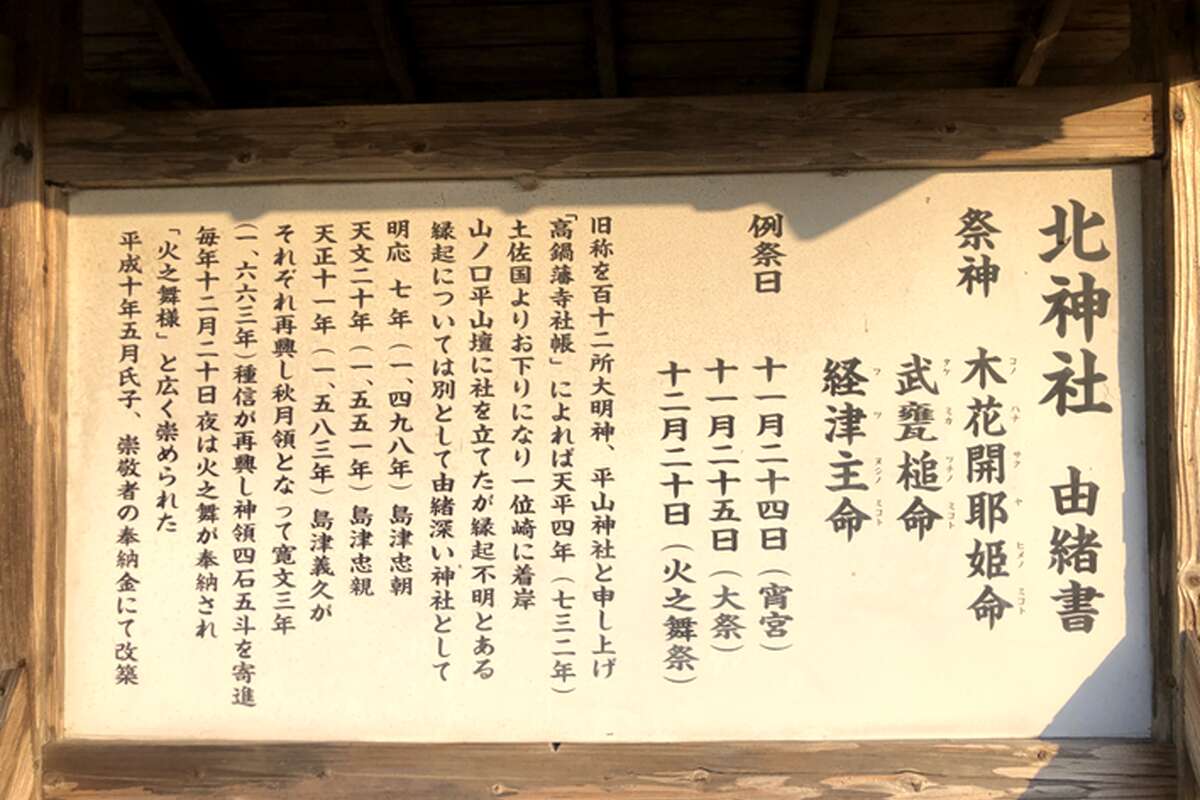 北神社 由緒書
祭神 木花開耶姫命
コノ ハナ サク ヤ ヒメノ ミコト
武甕槌命
タケ ミカ ツチノ ミコト
経津主命
フ ツ ヌシノ ミコト
例祭日 十一月二十四日(宵宮)
十一月二十五日(大祭)
十二月二十日(火之舞祭)
旧称を百十二所大明神、平山神社と申し上げ
「高鍋藩寺社帳」によれば天平四年(七三二年)
土佐国よりお下りになり一位崎に着岸
山ノ口平山壇に社を立てたが縁起不明とある
縁起については別として由緒深い神社として
明応 七年(一、四九八年)島津忠朝
天文二十年(一、五五一年)島津忠親
天正十一年(一、五八三年)島津義久が
それぞれ再興し秋月領となって寛文三年
(一、六六三年)種信が再興し神領四石五斗を寄進
毎年十二月二十日夜は火之舞が奉納され
「火之舞様」と広く崇められた
平成十年五月氏子、崇敬者の奉納金にて改築